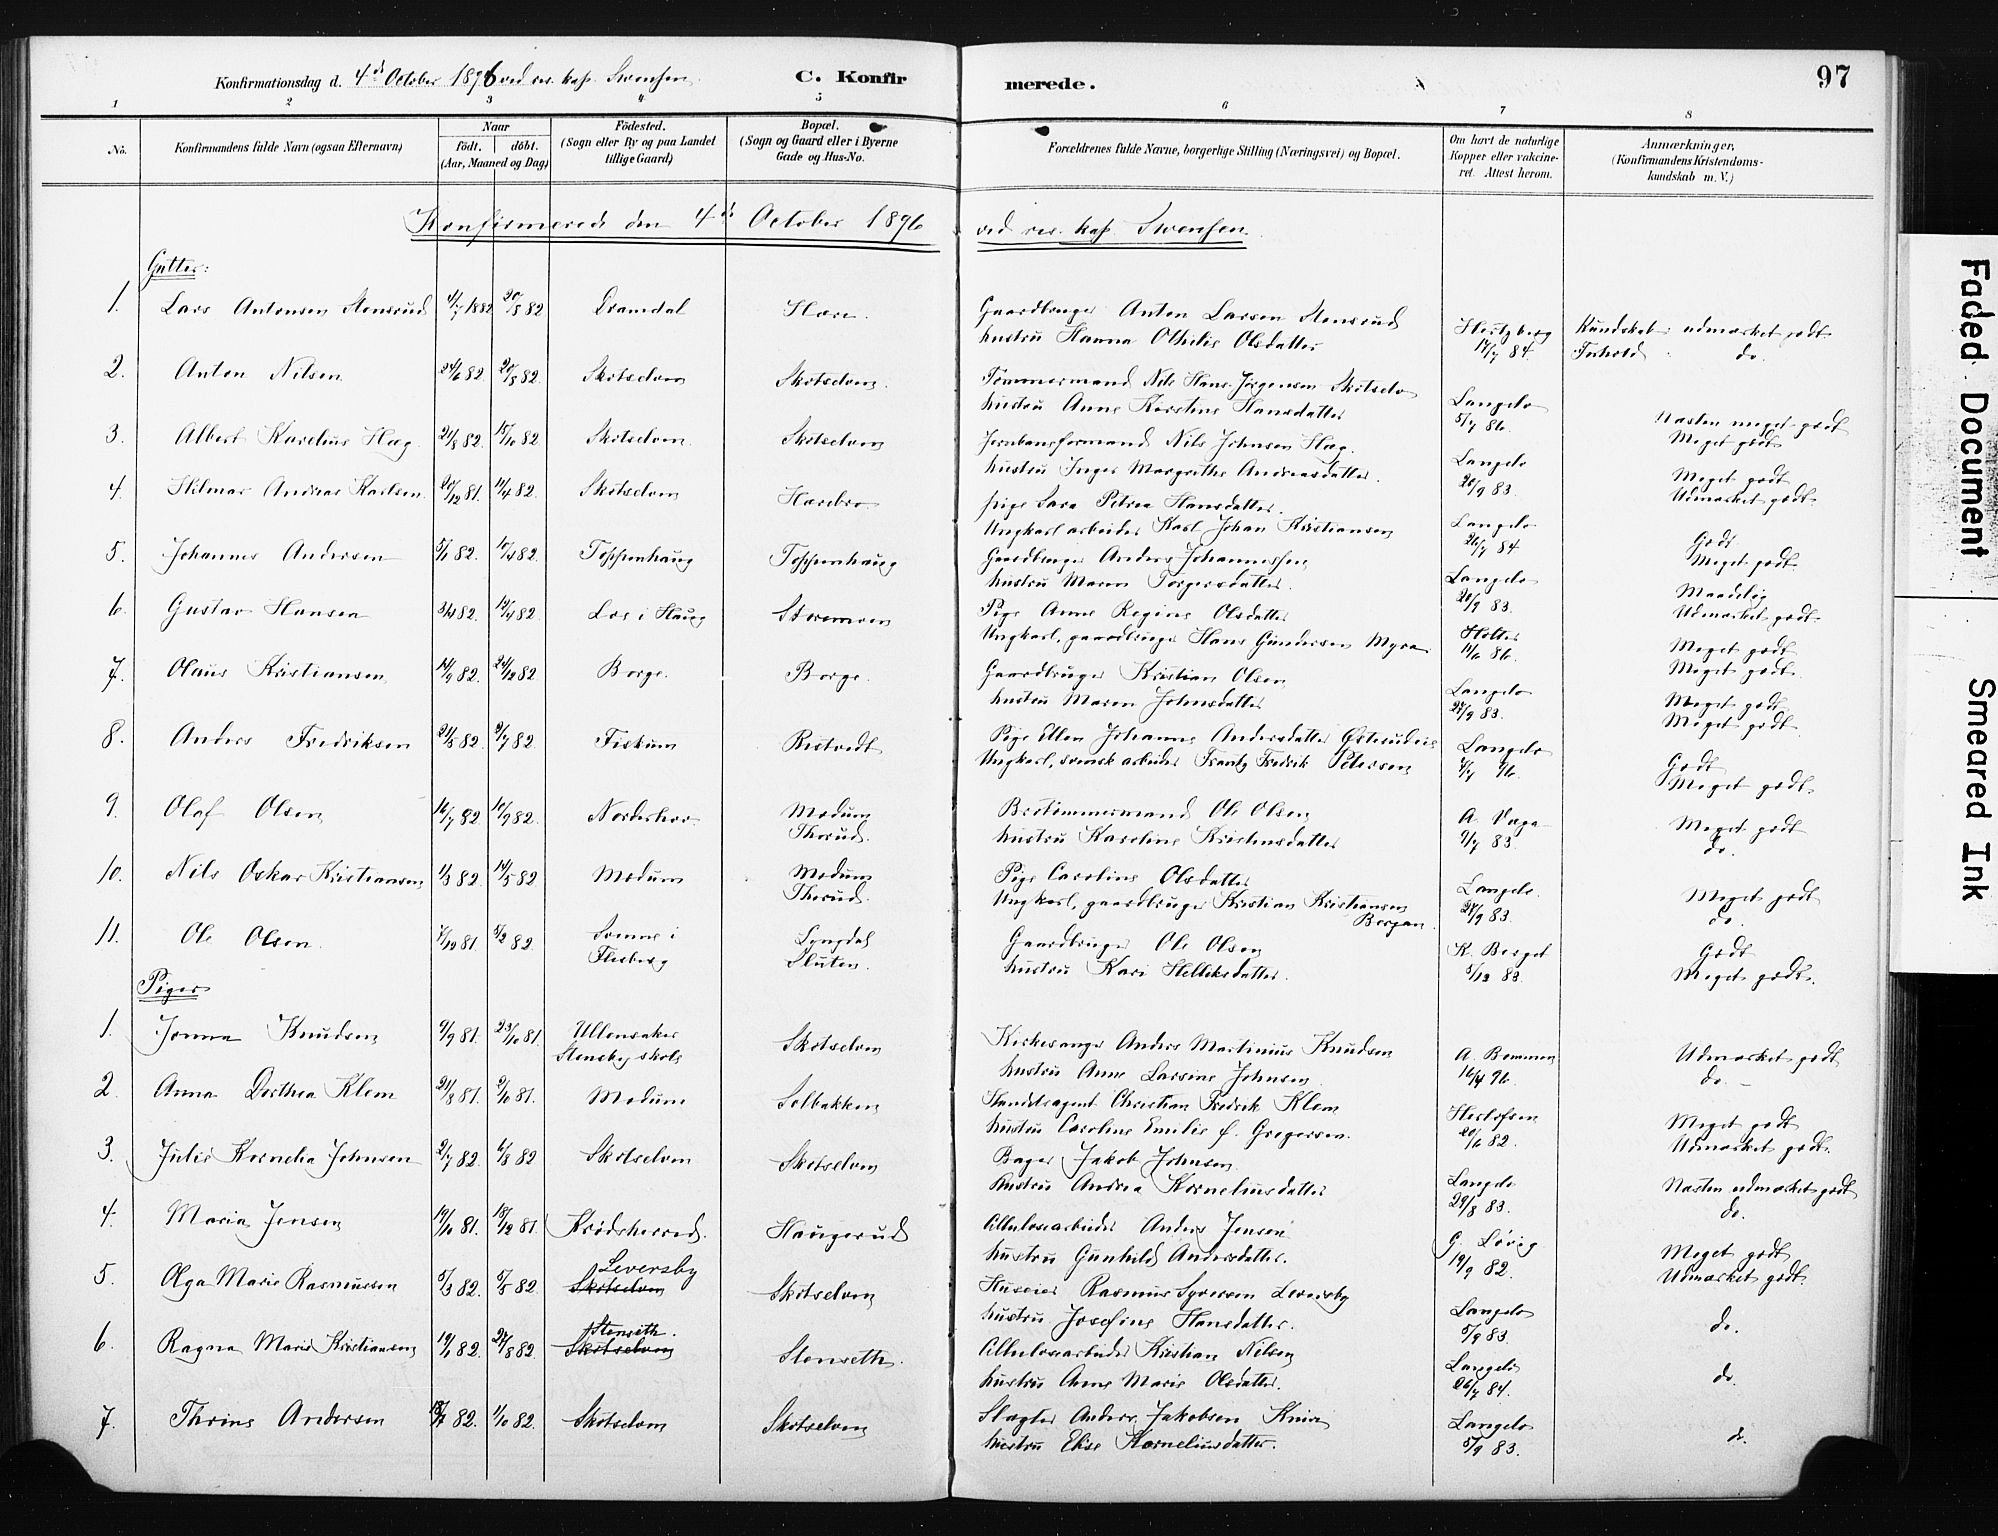 Konfirmationsdag d. 4de October 1896 ved res. kap. Svensen. C. Konfirmerede. 97
1 2 3 4 5 6 7 8
No. Konfirmandens fulde Navn (ogsaa Efternavn) Naar födt. döbt. (Aar, Maaned og Dag) Födested. (Sogn eller By og paa Landet tillige Gaard) Bopæl. (Sogn og Gaard eller i Byerne Gade og Hus-No. Forældrenes fulde Navne, borgerlige Stilling (Næringsvei) og Bopæl. Om havt de naturlige Kopper eller vakcineret. Attest herom. Anmærkninger, (Konfirmandens Kristendomskundskab m. V.)
Konfirmerede den 4de October 1896 ved res. kap. Svensen.
Gutter:
1. Lars Antonsen Stensrud 4/7 1882 20/8 82 Dramdal Hære. Gaardbruger Anton Larsen Stensrud
hustru Hanna Othilie Olsdatter Hertzberg 17/7 84. Kundskab: udmærket godt
Forhold: do.
2. Anton Nilsen 24/6 82. 20/8 82. Skotselven Skotselven. Tømmermand Nils Hans Jørgensen Skotselv
hustru Anne Kirstine Hansdatter Langelo 5/7 86. Næsten meget godt
Meget godt
3. Albert Karelius Hæg. 21/8 82. 15/10 82 Skotselven Skotselven Jernbaneformand Nils Johnsen Hæg.
hustru Inger Margrethe Andreasdatter. Langelo 20/9 83. Meget godt
Udmærket godt.
4. Hilmar Andreas Karlsen 20/12 81. 11/4 82. Skotselven Harebro pige Sara Petrea Hansdatter.
Ungkarl arbeider Karl Johan Kristiansen Langelo 26/7 84 Godt
Meget godt.
5. Johannes Andersen 5/1 82. 10/4 82. Toppenhaug Toppenhaug Gaardbruger Anders Johannessen
hustru Maren Torgersdatter. Langelo 20/9 83. Maadelig
Udmærket godt.
6. Gustav Hansen 3/4 82. 12/4 82. Løs i Haug Storemoen Pige Anne Regine Olsdatter
Ungkarl, gaardbruger Hans Gundersen Myra Holter 11/6 86. Meget godt
Meget godt.
7. Olaus Kristiansen 14/9 82. 24/12 82 Borge. Borge. Gaardbruger Kristian Olsen
hustru Maren Johnsdatter Langelo 27/9 83. Meget godt
Meget godt.
8. Anders Fredriksen 21/5 82. 2/7 82. Fiskum Ristvedt Pige Ellen Johanne Andersdatter
Ungkarl, svensk arbeider Frantz Fredrik Petersen Langelo Godt
Meget godt.
9. Olaf Olsen 16/7 82 10/9 82. Norderhov Modum
Thorud. Bestimmermand Ole Olsen
hustru Karoline Kristensdatter A. Vaga 9/7 83. Meget godt
do.
10. Nils Oskar Kristiansen 1/3 82. 14/5 82 Modum Modum
Thorud. Pige Caroline Olsdatter
Ungkarl, gaardbruger Kristian Kristiansen Bergan. Langelo 27/9 83. Meget godt
do.
11. Ole Olsen. 7/12 81 5/2 82 i
Flesberg Lyngdal
Sluten. Gaardbruger Ole Olsen
hustru Kari Helliksdatter. K. Berget 5/12 83. Godt
Meget godt.
Piger
1. Jonna Knudsen 9/9 81. 23/10 81. Ullensaker
Stensby skole Skotselven Kirkesanger Anders Martinius Knudsen
hustru Anne Larsine Johnsen A. Bommen 16/4 96. Udmærket godt
do. –
2. Anna Dorthea Klem 21/8 81. 2/10 81. Modum Solbakken Handelsagent Christian Fredrik Klem
hustru Caroline Emilie f. Gregersen. Herlofsen 20/6 82. Meget godt
Udmærket godt.
3. Julie Kornelia Johnsen 2/7 82. 6/8 82 Skotselven Skotselven Bager Jakob Johnsen
hustru Andrea Kornelinsdatter Langelo 29/8 83. Næsten udmærket godt
do.
4. Maria Jensen 19/10 81. 18/12 81. Krødsherred. Haugerud Cellulosearbeider Anders Jensen
hustru Gunhild Andersdatter. G. Løvig 19/9 82. Meget godt
Udmærket godt.
5. Olga Marie Rasmussen 5/3 82. 5/5 82 Leversby
Skotselven Skotselven Huseier Rasmus Syversen Leversby
hustru Josefine Hansdatter. Langelo 5/9 83. do.
6. Ragna Marie Kristiansen 19/1 82. 27/8 82. Stenseth.
Skotselven Stenseth. Cellulosearbeider Kristian Nilsen
hustru Anne Marie Olsdatter. Langelo 26/7 84. do.
7. Thrine Andersen 82. 1/10 82. Skotselven Skotselven Slagter Anders Jakobsen Knive
hustru Elise Kornelinsdatter. Langelo 5/9 83. do.
Faded Document
Smeared Ink